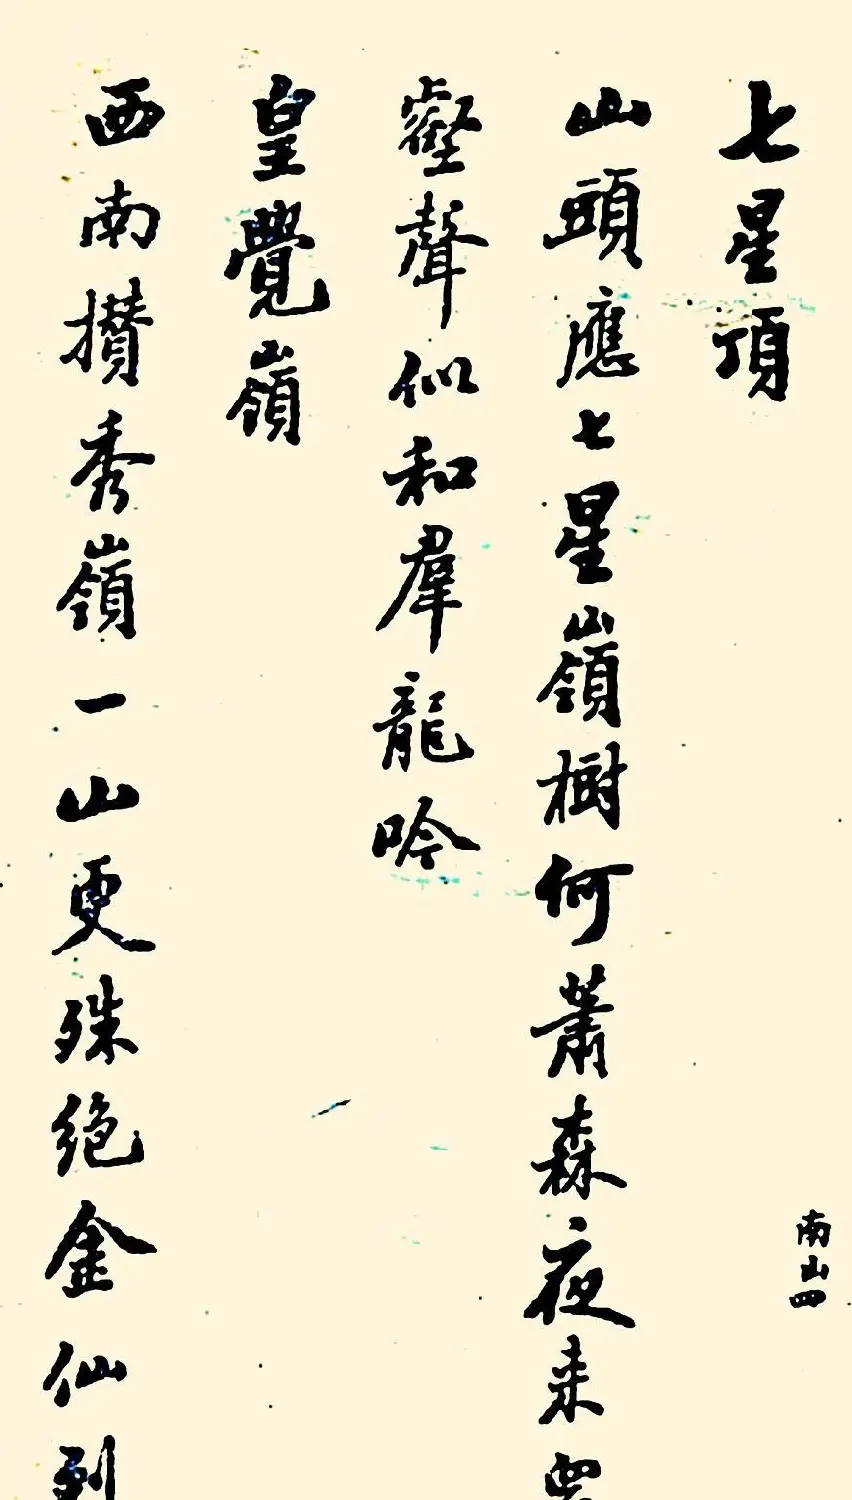 七星頂
山頭應七星嶺樹何蕭森夜来
壑聲似和羣龍吟
皇覺嶺
西南攢秀嶺一山更殊絕金仙到
南山四